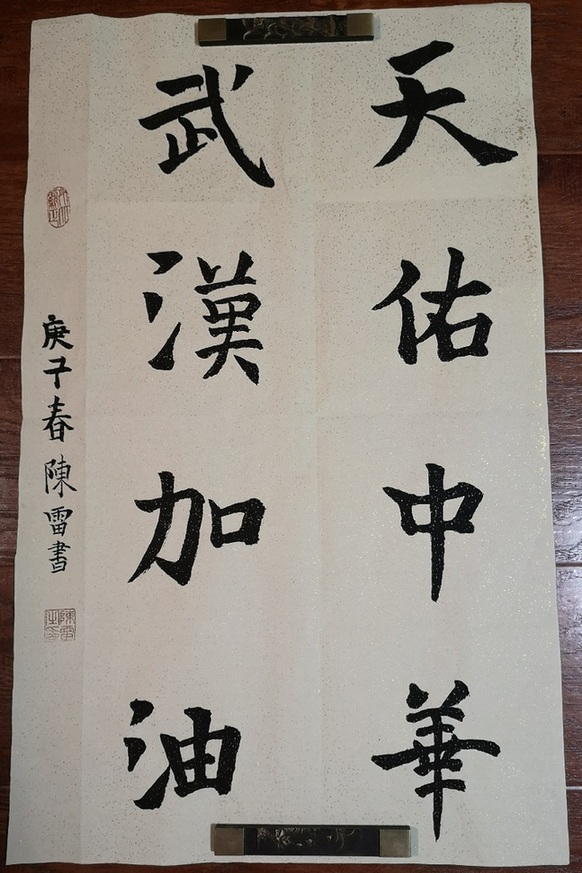 天佑中華
武漢加油
庚子春陳雷書